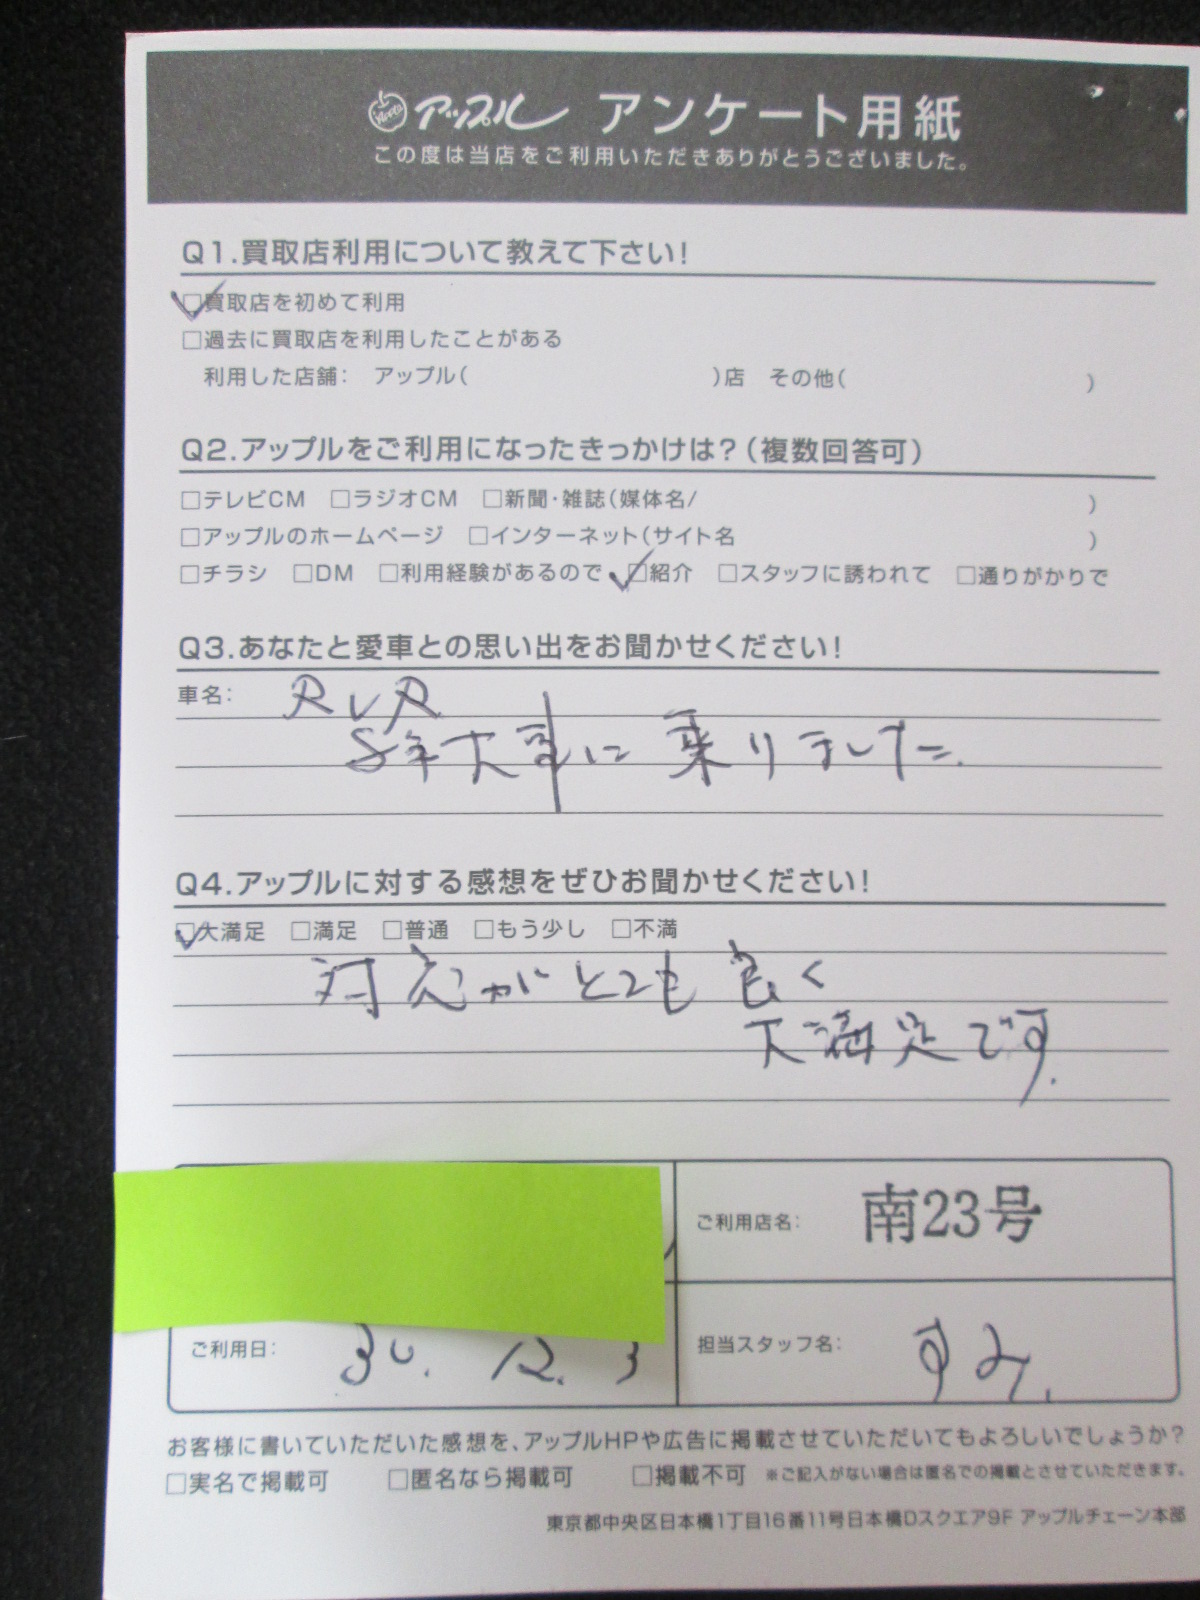 アップル アンケート用紙
この度は当店をご利用いただきありがとうございました。
Q1.買取店利用について教えて下さい!
□買取店を初めて利用
□過去に買取店を利用したことがある
利用した店舗: アップル( )店 その他( )
Q2.アップルをご利用になったきっかけは?(複数回答可)
□テレビCM □ラジオCM □新聞・雑誌(媒体名/ )
□アップルのホームページ □インターネット(サイト名 )
□チラシ □DM □利用経験があるので □紹介 □スタッフに誘われて □通りがかりで
Q3.あなたと愛車との思い出をお聞かせください!
車名: RVR
8年大事に乗りました.
Q4.アップルに対する感想をぜひお聞かせください!
□大満足 □満足 □普通 □もう少し □不満
対応がとても良く
大満足です.
ご利用店名: 南23号
ご利用日: 30. 12. 3
担当スタッフ名: すみ.
お客様に書いていただいた感想を、アップルHPや広告に掲載させていただいてもよろしいでしょうか?
□実名で掲載可 □匿名なら掲載可 □掲載不可 ※ご記入がない場合は匿名での掲載とさせていただきます。
東京都中央区日本橋1丁目16番11号日本橋Dスクエア9F アップルチェーン本部